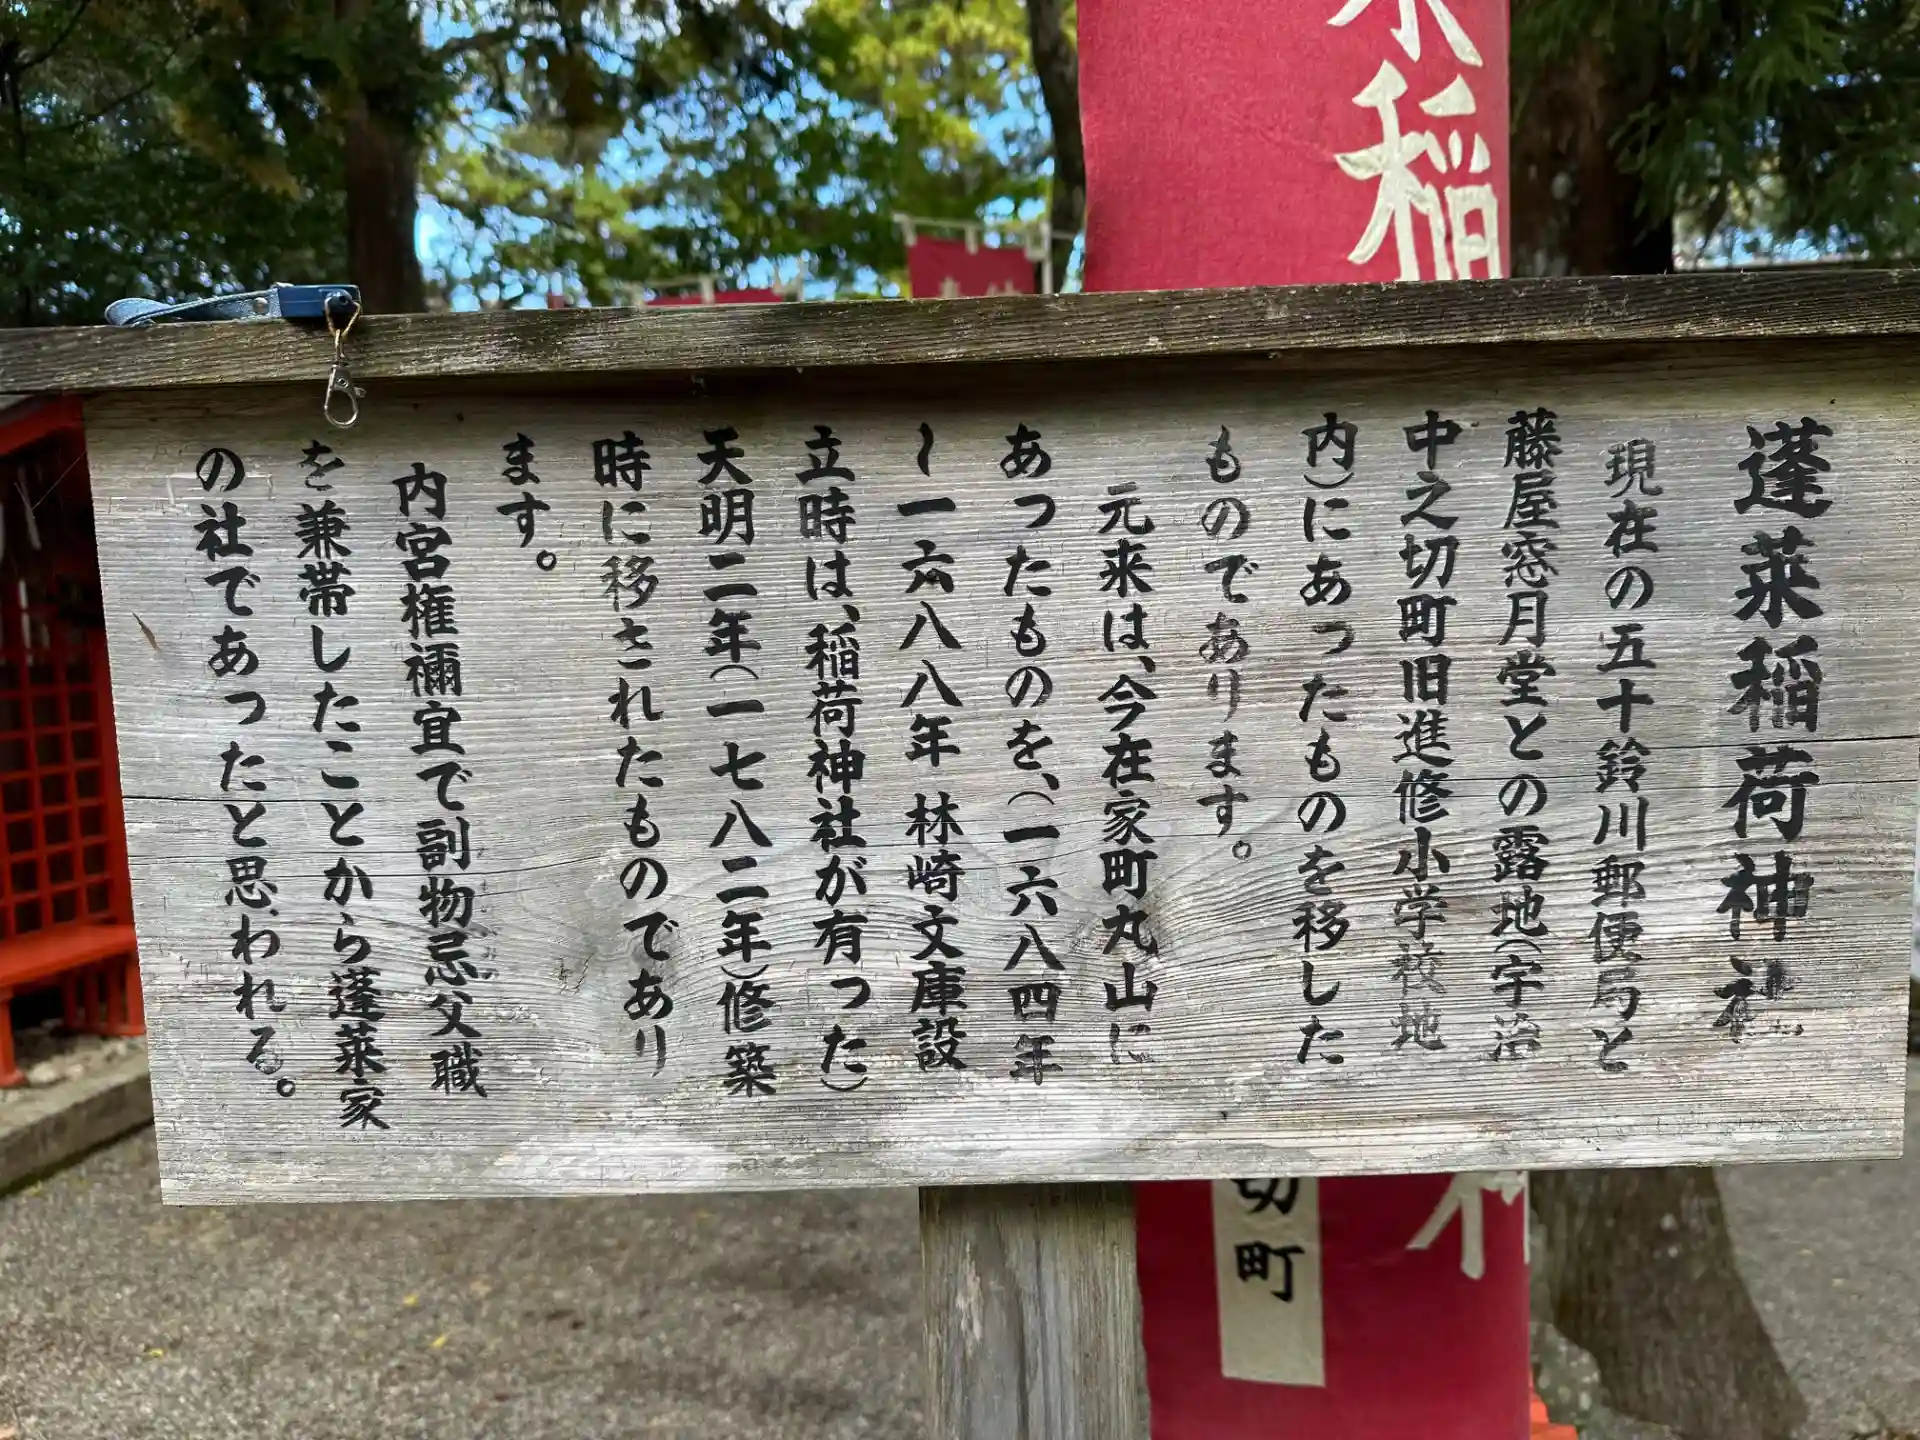 蓬莱稲荷神社
現在の五十鈴川郵便局と
藤屋窓月堂との露地(宇治
中之切町旧進修小学校地
内)にあったものを移した
ものであります。
元来は、今在家町丸山に
あったものを、(一六八四年
〜一六八八年 林崎文庫設
立時は、稲荷神社が有った)
天明二年(一七八二年)修築
時に移されたものであり
ます。
内宮権禰宜で副物忌父職
を兼帯したことから蓬莱家
の社であったと思われる。
稲
切町